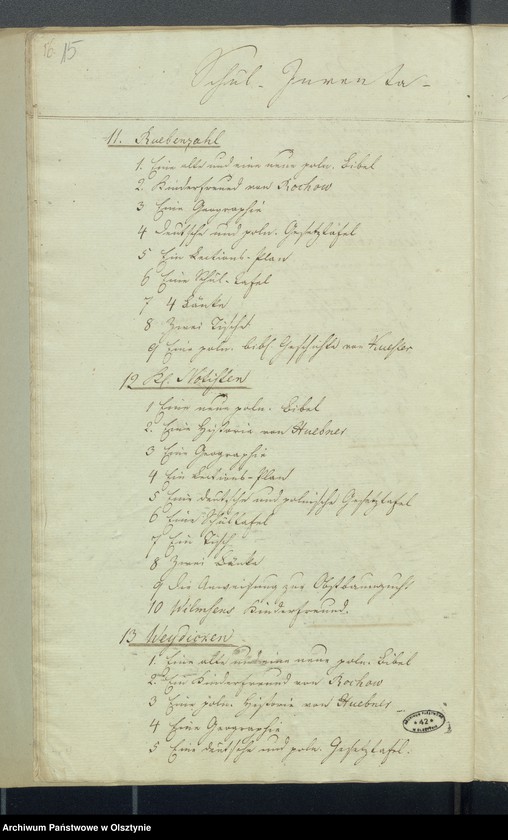 15
Schul-Inventa-
11. Ruebenzahl
1. Eine alte und eine neue poln. Bibel
2. Kinderfreund von Rochow
3 Eine Geographie
4 deutsche und poln. Gesetztafel
5 Ein Lections-Plan
6 Eine Schul-tafel
7 4 Bänke
8 Zwei Tische
9 Eine poln. bibl. Geschichte von
12 Kl. Notisten
1 Eine neue poln. Bibel
2. Eine Historie von Huebner
3 Eine Geographie
4 Ein Lections-Plan
5 Eine deutsche und polnische Gesetztafel
6 Eine Schultafel
7 Ein Tisch
8 Zwei Bänke
9 Die Anweisung zur Obstbaumzucht
10 Wilmsens Kinderfreund.
13 Weydicken
1. Eine alte und eine neue poln. Bibel
2. Ein Kinderfreund von Rochow
3 Eine poln. Historie von Huebner
4 Eine Geographie
5 Eine deutsche und poln. Gesetztafel.
42
Archiwum Państwowe w Olsztynie